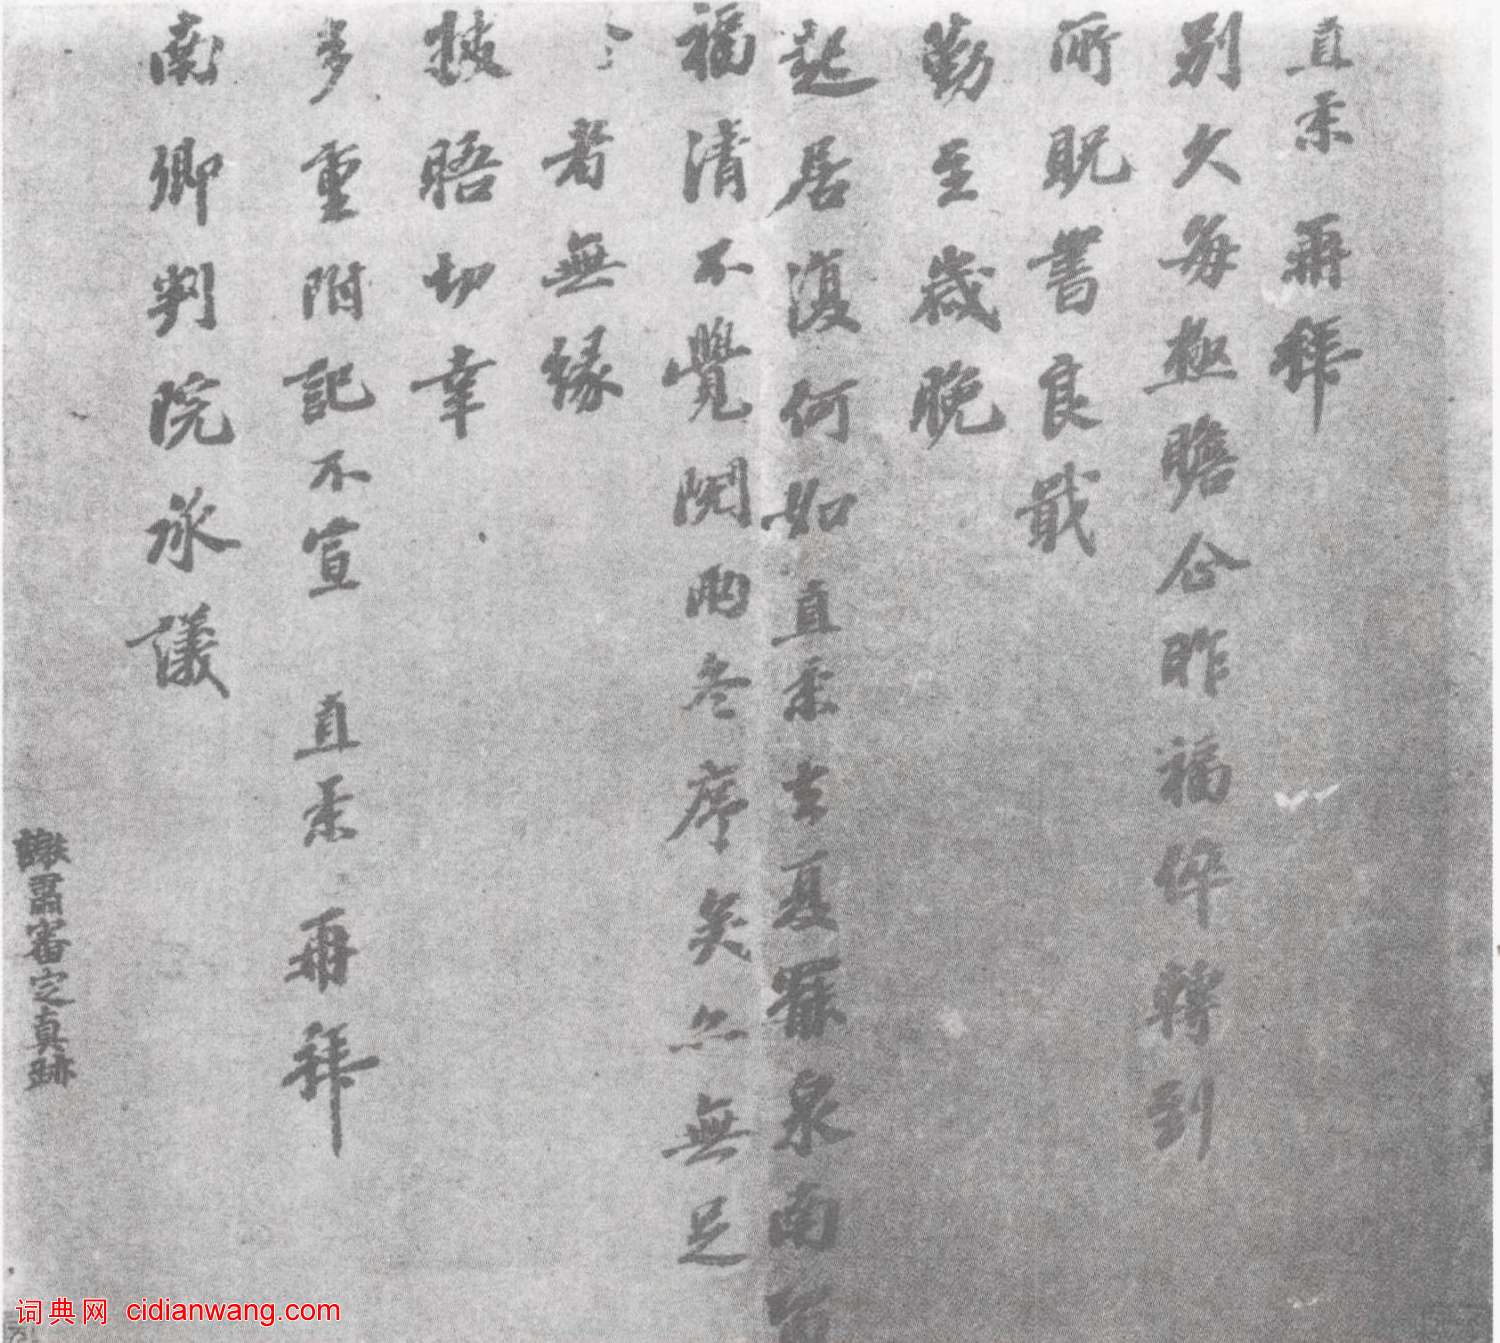 直柔再拜
別久每極瞻企昨福倅轉到
所貺書良戢
勤至歲晚
起居復何如直柔去夏罷泉南
福清不覺閱兩冬序矣無足
者無緣
披晤切幸
多重附記不宣 直柔再拜
南卿判院承議
謝肅審定真跡
词典网 cidianwang.com